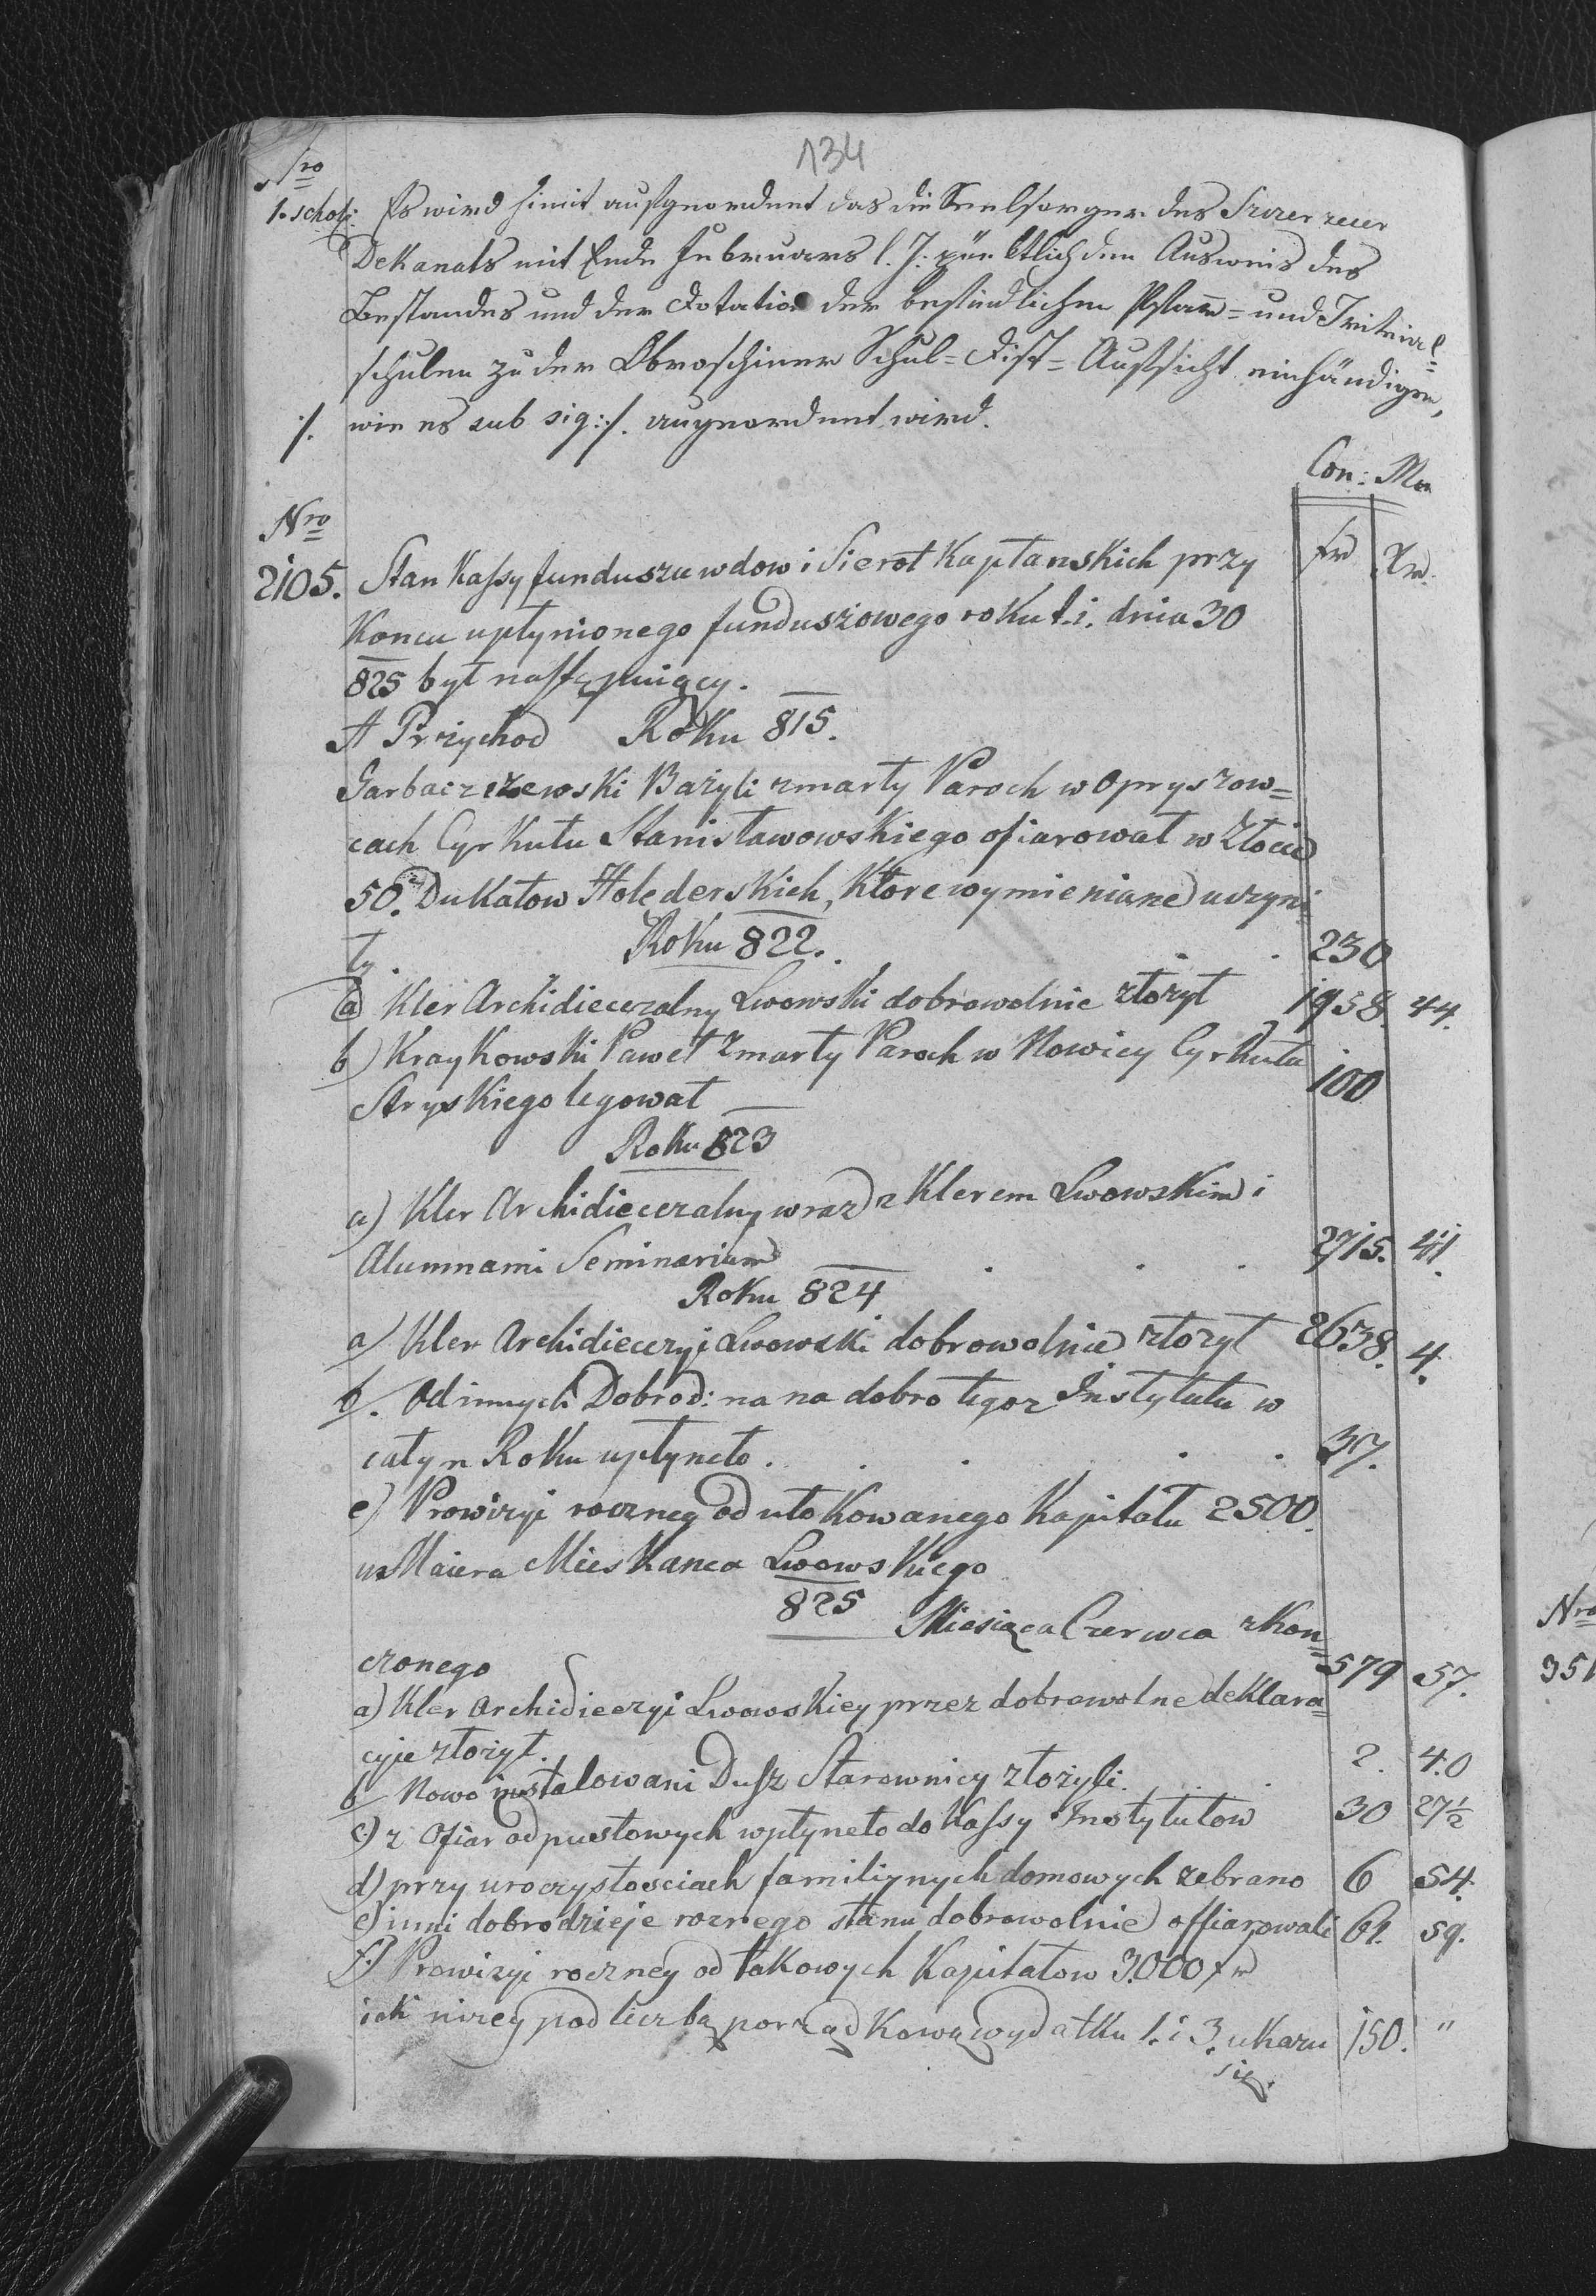 134
Nro
1. schol: Es wird hiemit aufgeordnent das die Seelsorger des Szczerzecer
Dekanats mit Ende Februars l. J. pünktlich den Ausweis des
Bestandes und der Dotation der befindlichen Pfarr= und Trivial=
schulen zu der Obroschiner Schul=Dist=Aufsicht einhändigen,
·/. wie es sub sig: ·/. angeordnent wird.
Con: Mu
Nro fr Xr.
2105. Stan Kassy funduszu wdow i Sierot Kapłanskich przy
Koncu upłynionego funduszowego roku t. i. dnia 30
825 był następuiący.
A Przychod Roku 815.
Garbaczewski Bazyli zmarły Paroch w Opryszow=
cach Cyrkułu Stanisławowskiego ofiarował w Złocie
50. Dukatow Holęderskich, Ktore wymieniane uczyni=
ły. Roku 822. . . 230
a) Kler Archidiecezalny Lwowski dobrowolnie złożył 1958. 44.
b) Kraykowski Paweł Zmarły Paroch w Nowicy Cyrkułu
Stryskiego legował 100
Roku 823
a) Kler Archidiecezalny wraz z Klerem Lwowskim i
Alumnami Seminarium . . . 2715. 41.
Roku 824
a) Kler Archidiecezyi Lwowski dobrowolnie złożył 2638. 4.
b. Od innych Dobrod: na na dobro tegoz Instytutu w
całym Roku upłyneło . . . . . 37.
c) Prowizyi roczney od ulokowanego Kapitału 2500.
u Maiera Mieskanca Lwowskiego
825 Miesiąca Czerwca zkon=
czonego 579 57.
a) Kler Archidiecezyi Lwowskiey przez dobrowolne deklara=
cyje złożył. 2. 40
b Nowo instalowani Dusz Starownicy złożyli. . .
c) z Ofiar odpustowych wpłyneło do Kassy Instytutow 30 27½
d) przy uroczystosciach familiynych domowych zebrano 6 54.
e) inni dobrodzieje roznego stanu dobrowolnie offiarowali 61. 59.
f.) Prowizyi roczney od takowych Kapitałow 3.000 fr
iak nizey pod liczbą porządkową wydatku 1. i 3. ukazu 150. "
się.
Nro
351